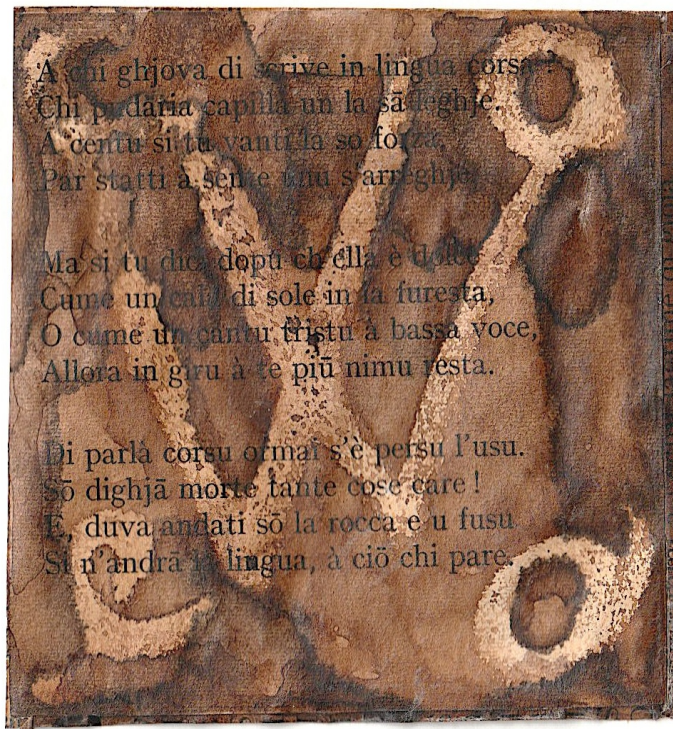 A chi ghjova di scrive in lingua corsa ?
Chi pudaria capilla un la sā leghje.
A centu si tu vanti la so forza,
Par statti à sente unu s'arreghje.
Ma si tu dici dopu ch'ella è dolce
Cume un calu di sole in la furesta,
O cume un cantu tristu à bassa voce,
Allora in giru à te piū nimu resta.
Di parlà corsu ormai s'è persu l'usu.
Sō dighjā morte tante cose care !
E, duva andati sō la rocca e u fusu
Si n'andrā la lingua, à ciō chi pare.